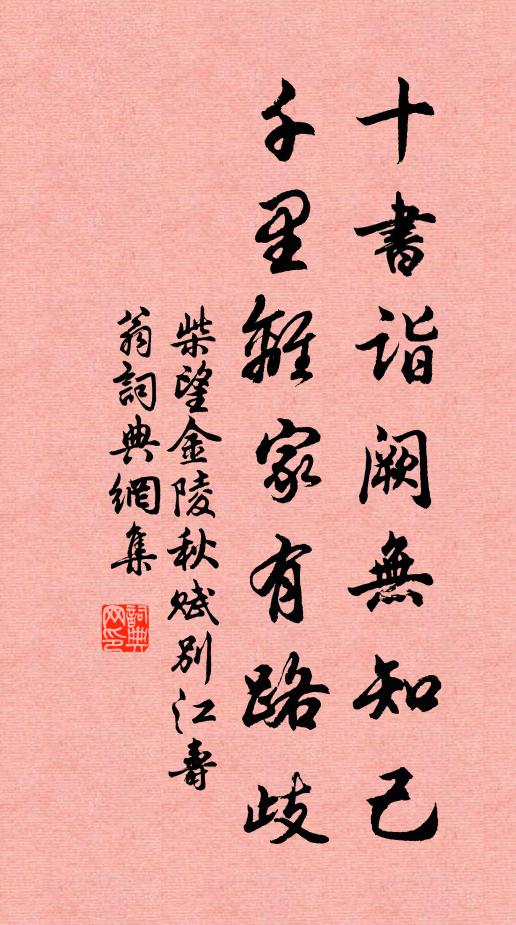 十書詣闕無知己
千里離家有路歧
柴望金陵秋賦別江壽
翁詞典網集
詞典网印